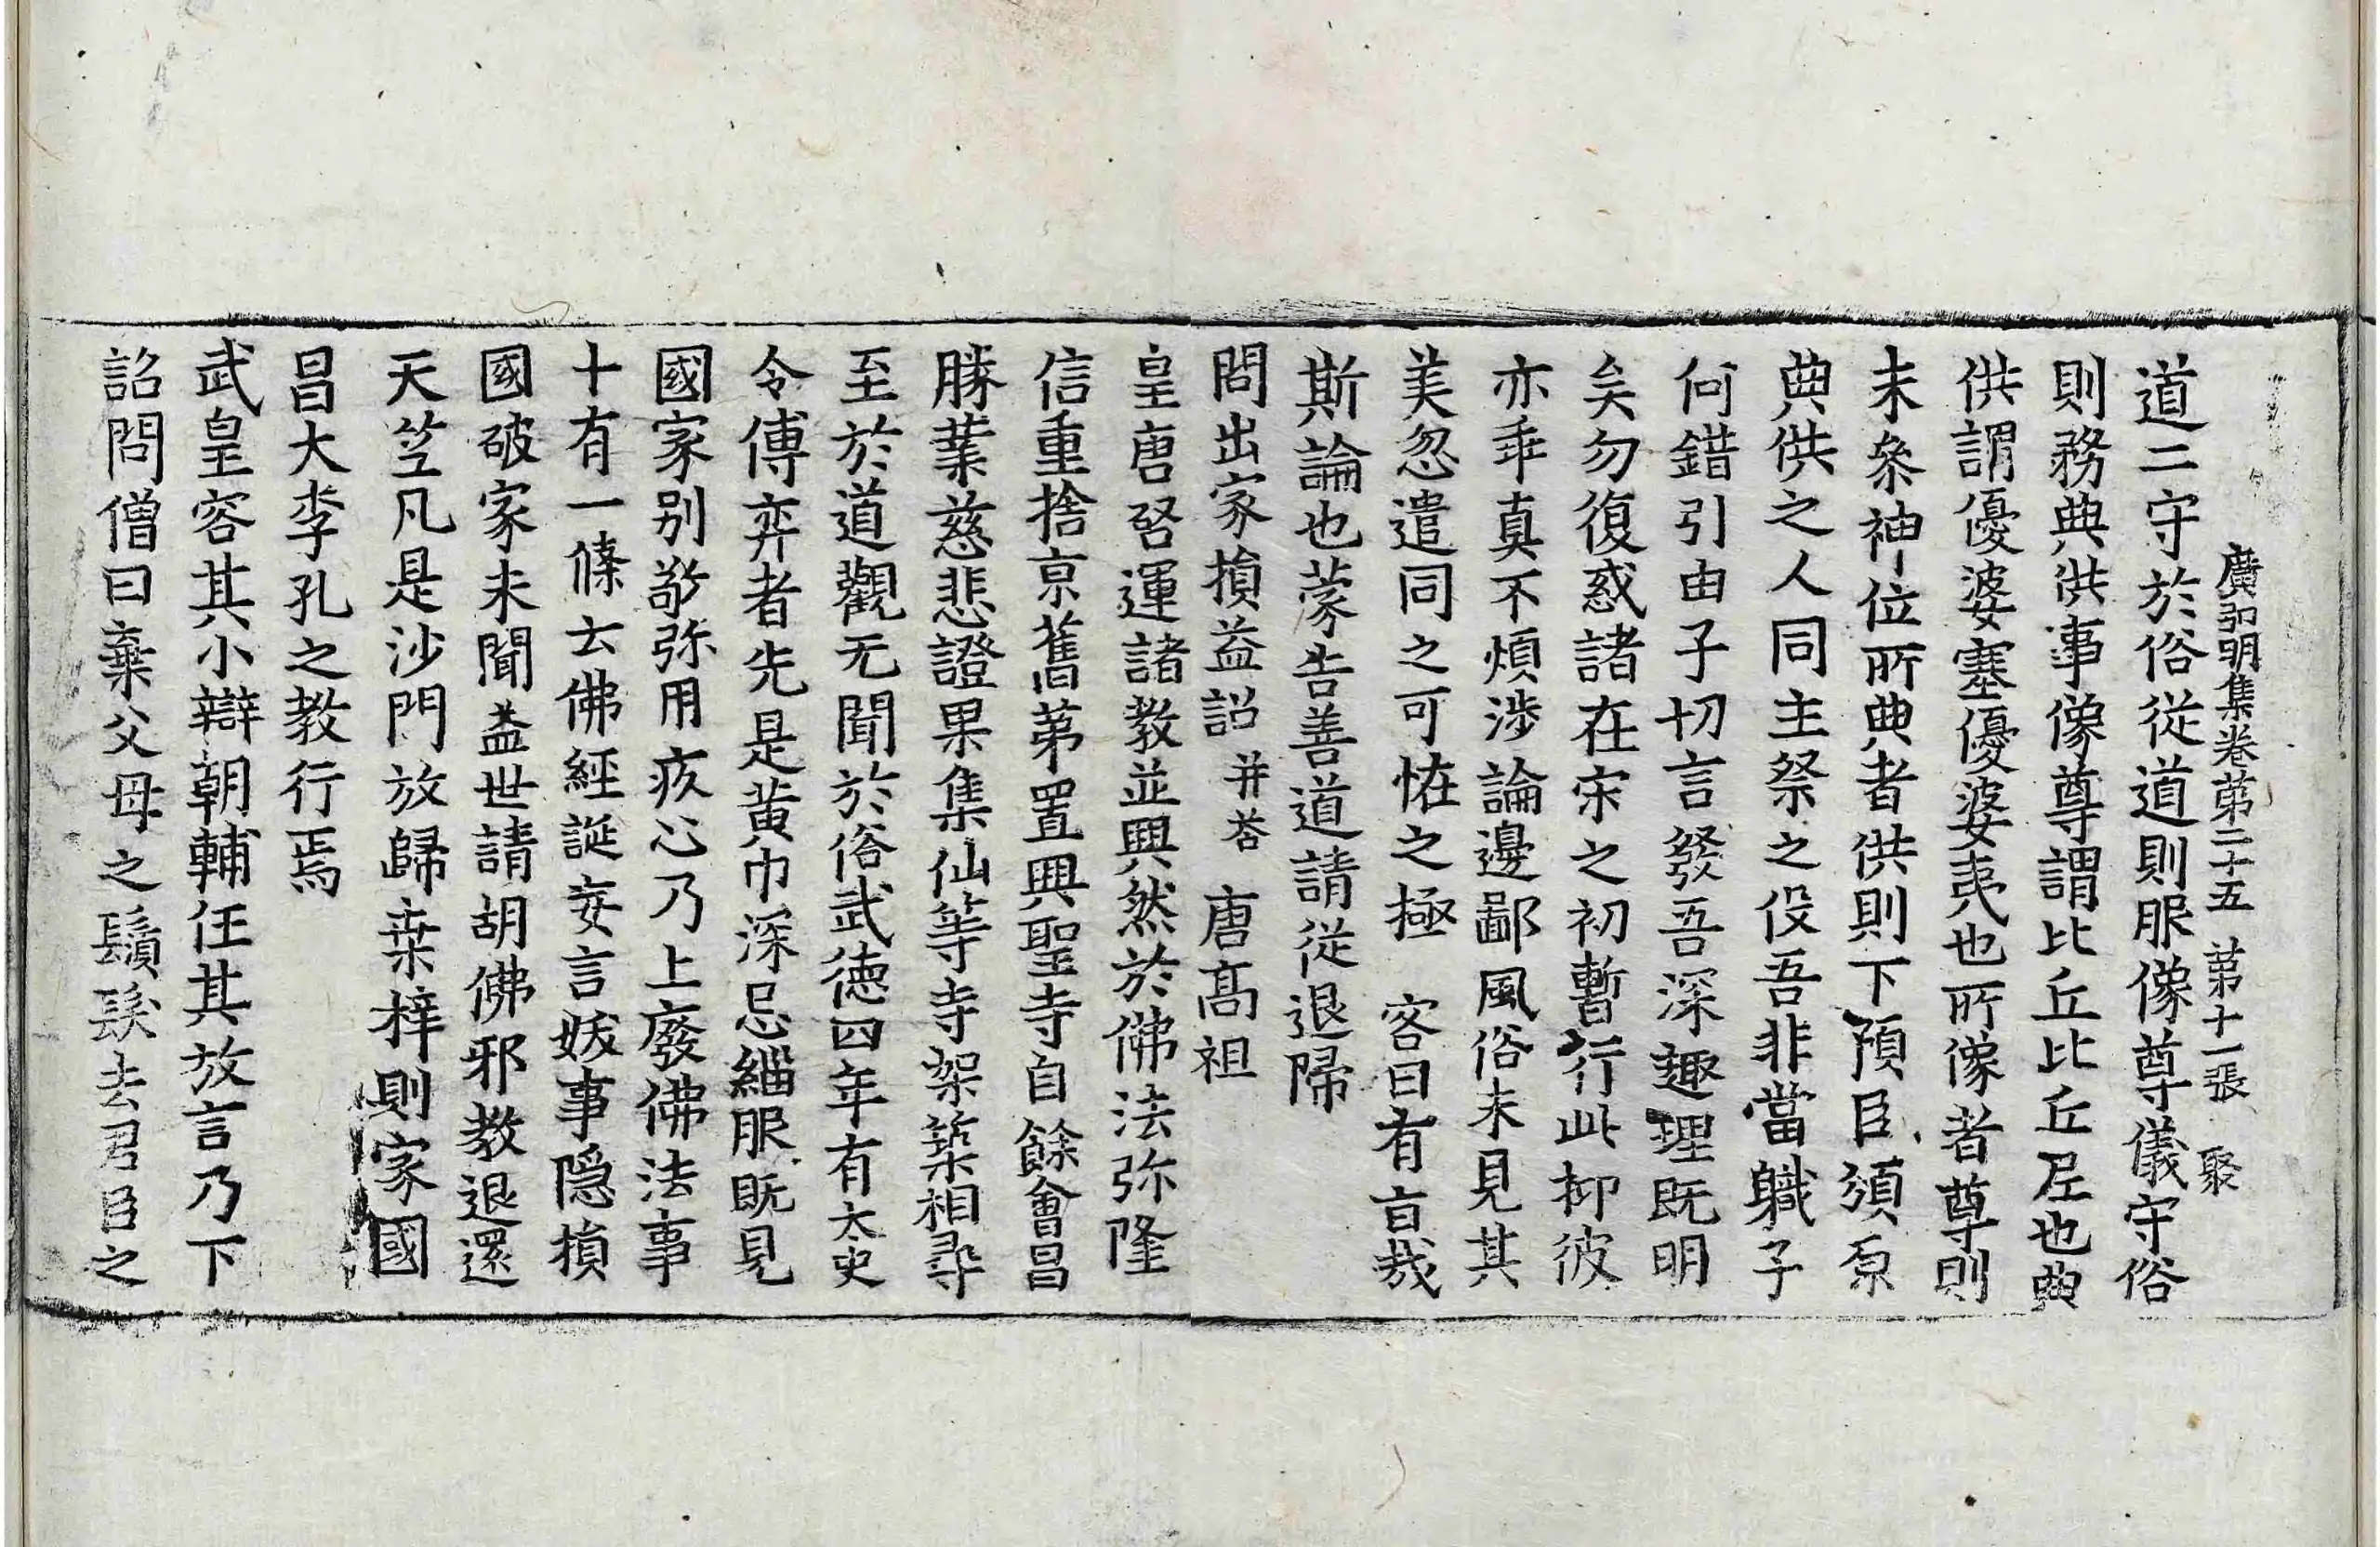 廣弘明集卷第二十五　第十一張　聚
道二守於俗從道則服像尊儀守俗
則務典供事像尊謂比丘比丘尼也典
供謂優婆塞優婆夷也所像者尊則
未叅神位所典者供則下預臣頒原
典供之人同主祭之役吾非當職子
何錯引由子切言發吾深趣理既明
矣勿復惑諸在宋之初暫行此抑彼
亦乖真不煩涉論邊鄙風俗未見其
美忽遣同之可恠之極　客曰有旨哉
斯論也蒙告善道請從退歸
問出家損益詔　并荅　唐高祖
皇唐啓運諸教並興然於佛法弥隆
信重捨京舊第置興聖寺自餘會昌
勝業慈悲證果集仙等寺架築相尋
至於道觀无聞於俗武德四年有太史
令傅弈者先是黄巾深忌緇服既見
國家别敬弥用疚心乃上廢佛法事
十有一條云佛經誕妄言妖事隐損
國破家未聞益世請胡佛邪教退還
天笁凡是沙門放歸桒梓則家國
昌大李孔之教行焉
武皇容其小辯朝輔任其放言乃下
詔問僧曰棄父母之鬚髮去君臣之